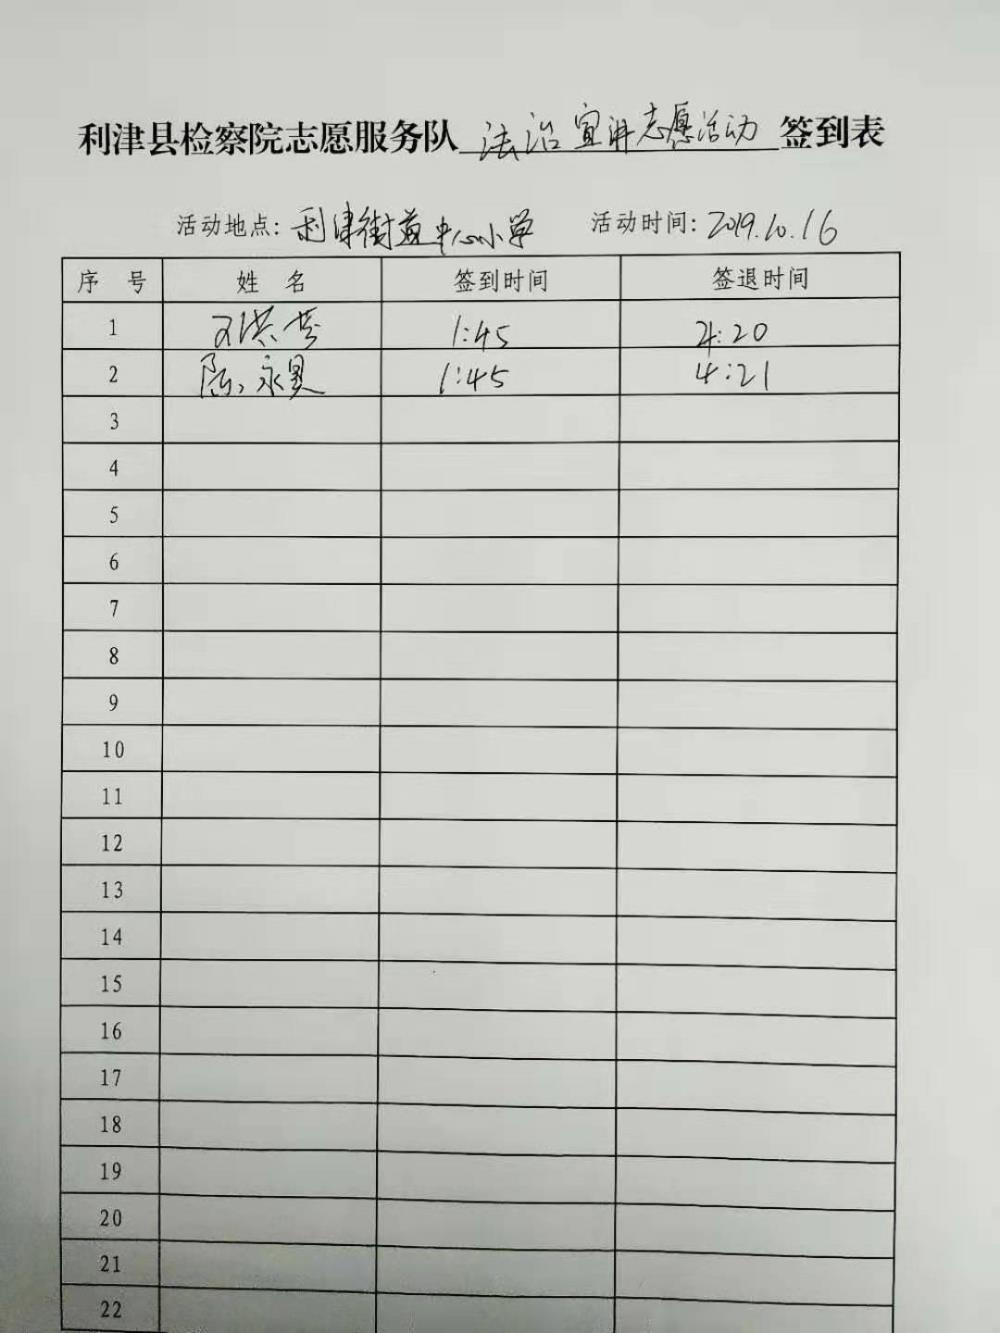 利津县检察院志愿服务队 法治宣讲志愿活动 签到表
活动地点: 利津街道中心小学 活动时间: 2019.10.16
序 号 姓 名 签到时间 签退时间
1 刘洪芬 1:45 4:20
2 陈永昊 1:45 4:21
3
4
5
6
7
8
9
10
11
12
13
14
15
16
17
18
19
20
21
22